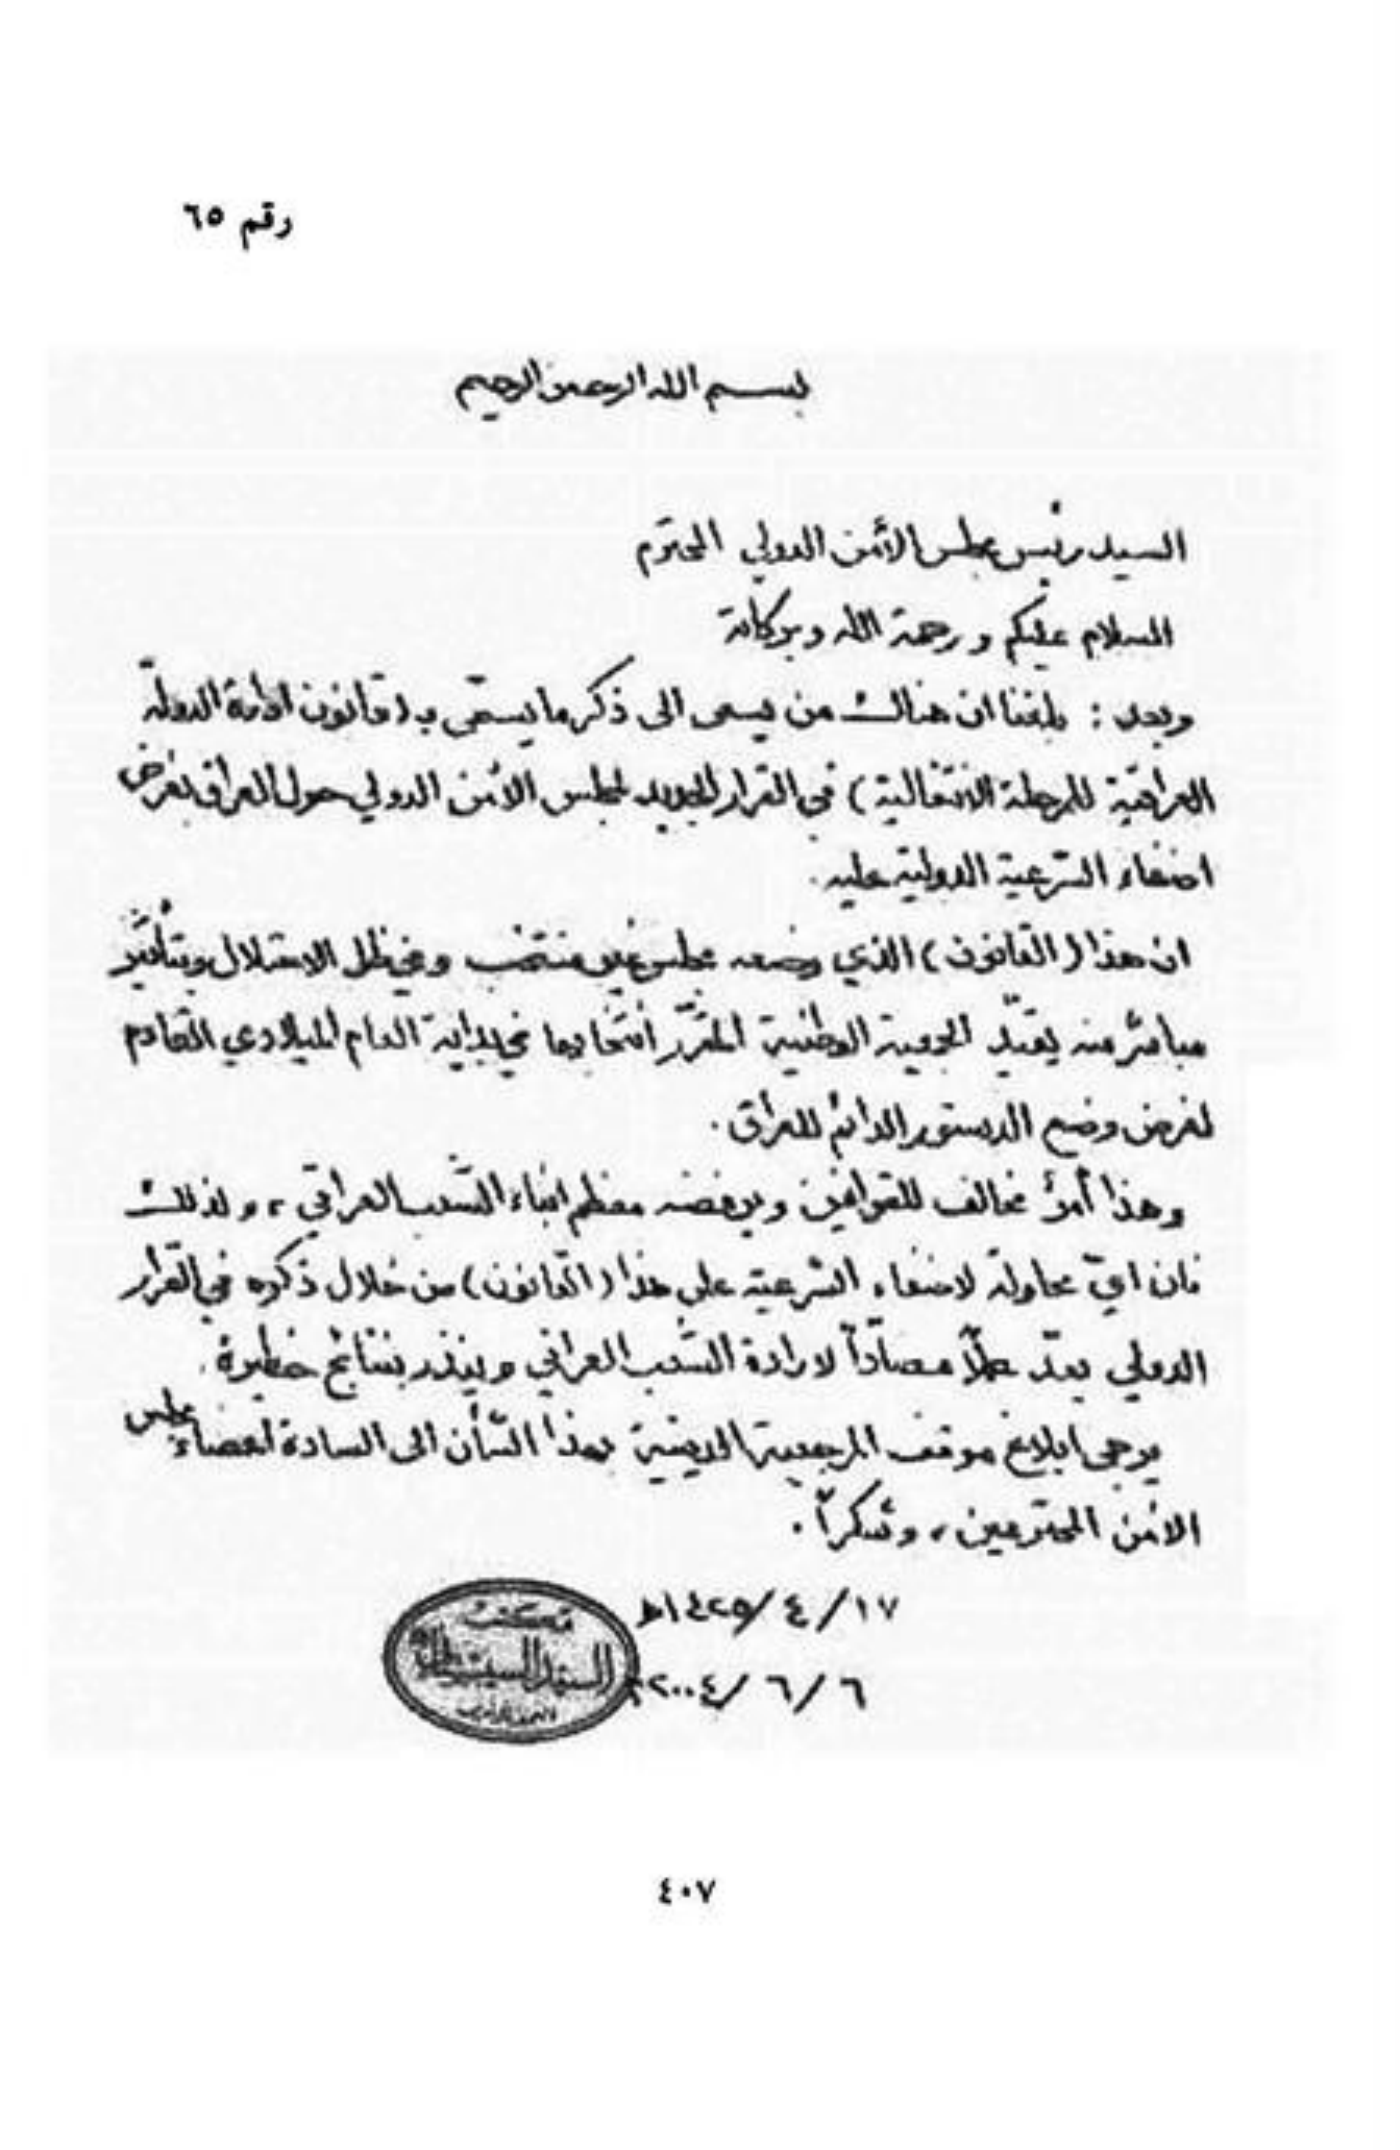 رقم ٦٥
بسم الله الرحمن الرحيم
السيد رئيس مجلس الأمن الدولي المحترم
السلام عليكم ورحمة الله وبركاته
وبعد : بلغنا ان هناك من يسعى الى ذكر ما يسمّى بـ (قانون ادارة الدولة
العراقية للمرحلة الانتقالية) في القرار الجديد لمجلس الأمن الدولي حول العراق بغرض
اضفاء الشرعية الدولية عليه .
ان هذا (القانون) الذي وضعه مجلس غير منتخب وفي ظل الاحتلال وبتأثير
مباشر منه يقيّد الجمعية الوطنية المقرّر انتخابها في بداية العام الميلادي القادم
لغرض وضع الدستور الدائم للعراق .
وهذا أمرٌ مخالف للقوانين ويرفضه معظم ابناء الشعب العراقي ، ولذلك
فان ايّ محاولة لاضفاء الشرعية على هذا (القانون) من خلال ذكره في القرار
الدولي يعدّ عملاً مضادّاً لارادة الشعب العراقي وينذر بنتائج خطيرة .
يرجى ابلاغ موقف المرجعية الدينية بهذا الشأن الى السادة اعضاء مجلس
الامن المحترمين ، وشكراً .
١٧ / ٤ / ١٤٢٥هـ
٦ / ٦ / ٢٠٠٤م
مكتب
السيد السيستاني
النجف الاشرف
٤٠٧